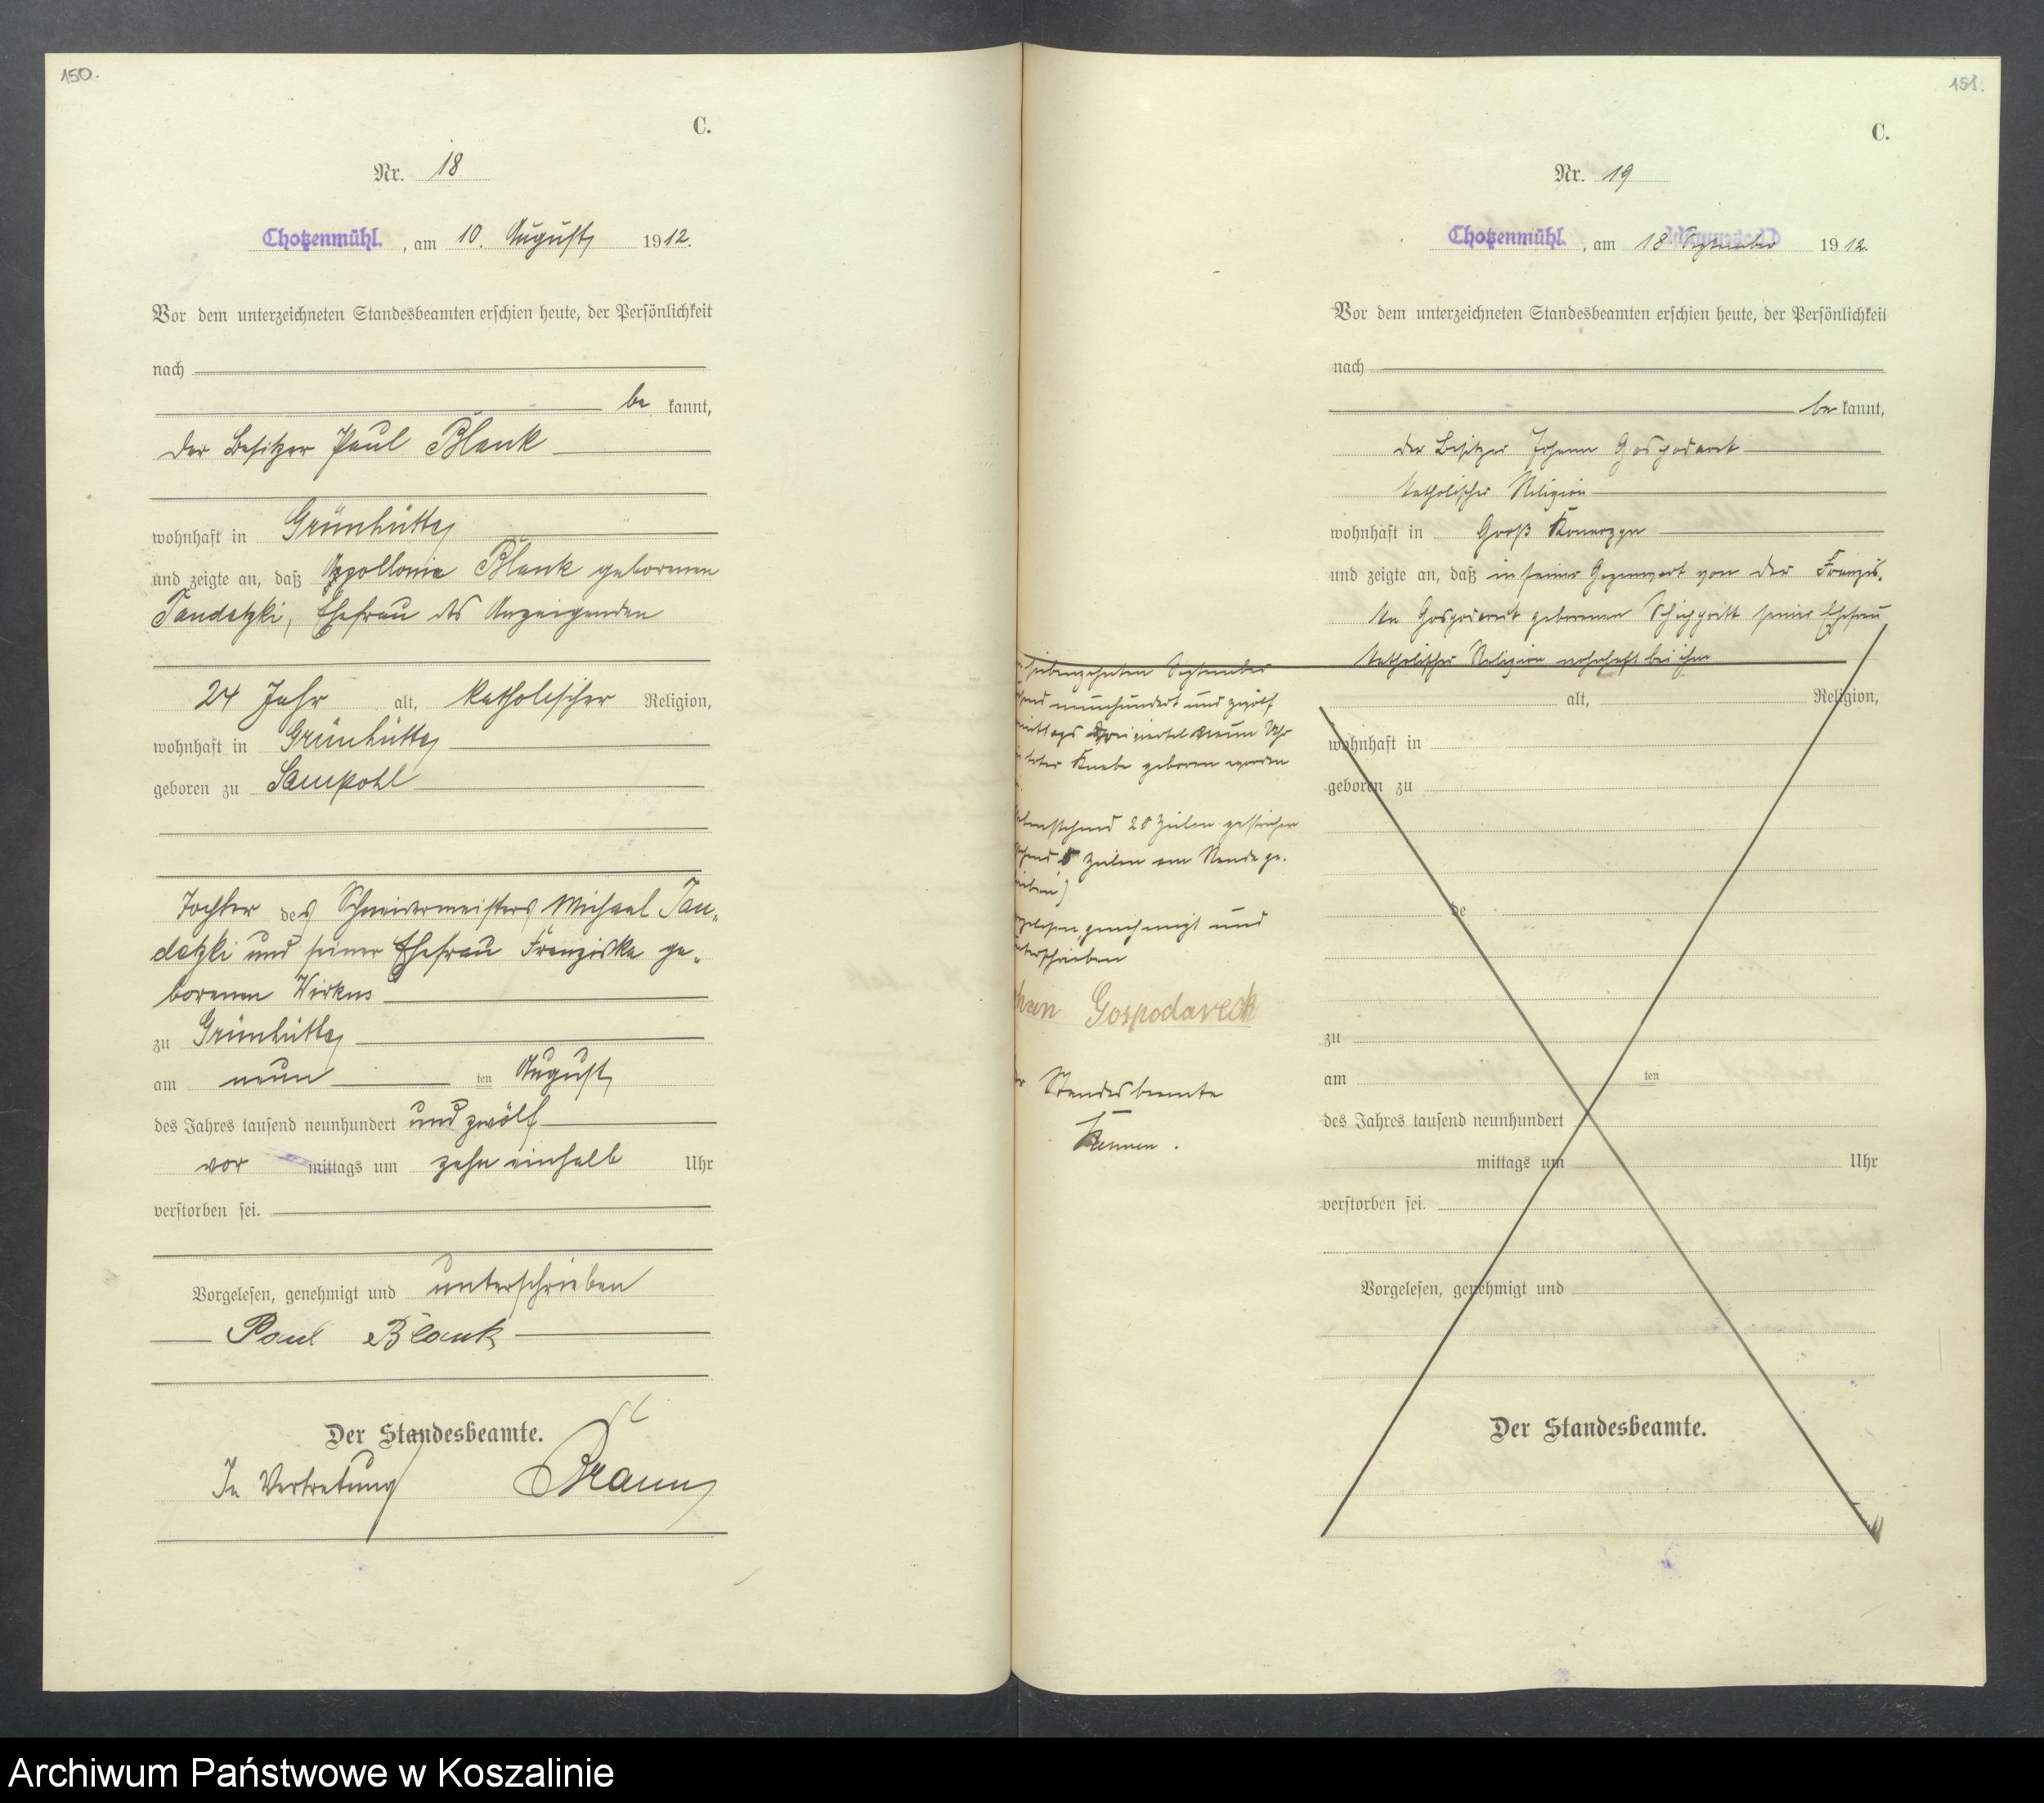 150.
C.
Nr. 18
Chotzenmühl. , am 10. August 1912.
Vor dem unterzeichneten Standesbeamten erschien heute, der Persönlichkeit
nach
be kannt,
der Besitzer Paul Blank
wohnhaft in Grünhütte
und zeigte an, daß Appollonia Blank geborenen
Tandetzki, Ehefrau des Anzeigenden
24 Jahr alt, katholischer Religion,
wohnhaft in Grünhütte
geboren zu Sampohl
Tochter des Schneidermeisters Michael Tan-
detzki und seiner Ehefrau Franziska ge-
borenen Wirkus
zu Grünhütte
am neun ten August
des Jahres tausend neunhundert und zwölf
vor mittags um zehn einhalb Uhr
verstorben sei.
Vorgelesen, genehmigt und unterschrieben
Paul Blank
Der Standesbeamte.
In Vertretung Braun
151.
C.
Nr. 19
Chotzenmühl. , am 18 September 1912.
Vor dem unterzeichneten Standesbeamten erschien heute, der Persönlichkeit
nach
be kannt,
der Besitzer Johann Gospodarek
katholischer Religion
wohnhaft in Groß Konarzyn
und zeigte an, daß in seiner Gegenwart von der Franzis-
ka Gospodarek geborenen seiner Ehefrau
katholischer Religion wohnhaft bei ihm
siebenzehnten September
neunhundert und zwölf
mittags dreiviertel neun Uhr
toter Knabe geboren worden
28 Zeilen gestrichen
Zeilen am Rande ge-
genehmigt und
unterschrieben
Gospodareck
Standesbeamte
alt, Religion,
wohnhaft in
geboren zu
de
zu
am ten
des Jahres tausend neunhundert
mittags um Uhr
verstorben sei.
Vorgelesen, genehmigt und
Der Standesbeamte.
Archiwum Państwowe w Koszalinie